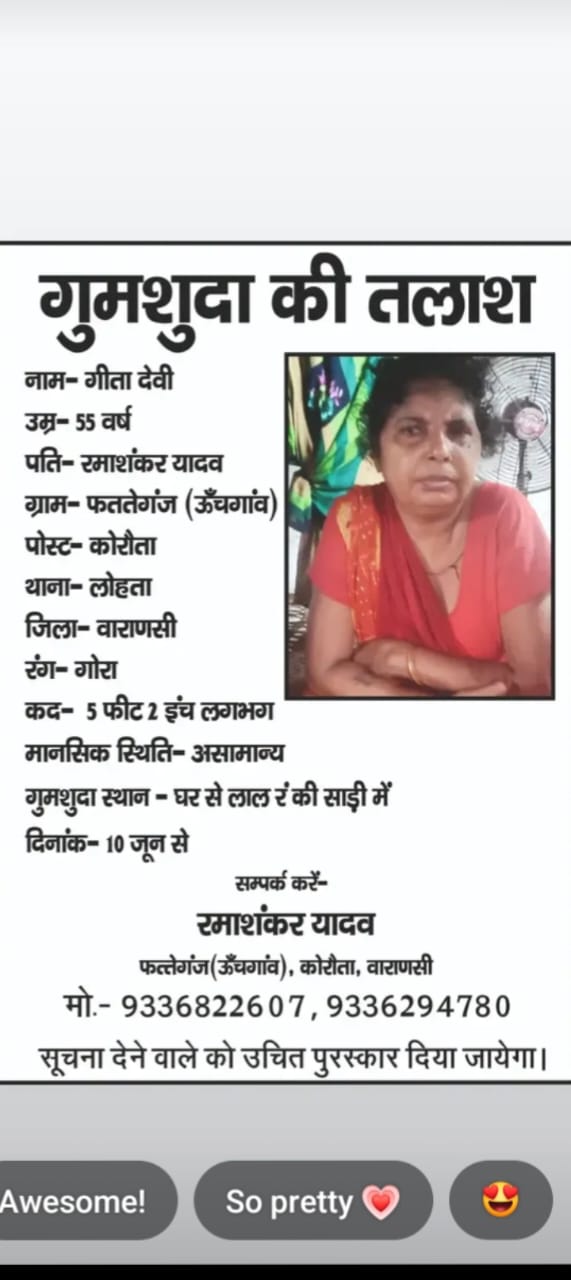 गुमशुदा की तलाश
नाम- गीता देवी
उम्र- 55 वर्ष
पति- रमाशंकर यादव
ग्राम- फततेगंज (ऊँचगांव)
पोस्ट- कोरौता
थाना- लोहता
जिला- वाराणसी
रंग- गोरा
कद- 5 फीट 2 इंच लगभग
मानसिक स्थिति- असामान्य
गुमशुदा स्थान - घर से लाल रंं की साड़ी में
दिनांक- 10 जून से
सम्पर्क करें-
रमाशंकर यादव
फत्तेगंज(ऊँचगांव), कोरौता, वाराणसी
मो.- 9336822607, 9336294780
सूचना देने वाले को उचित पुरस्कार दिया जायेगा।
Awesome!
So pretty 💗
😍